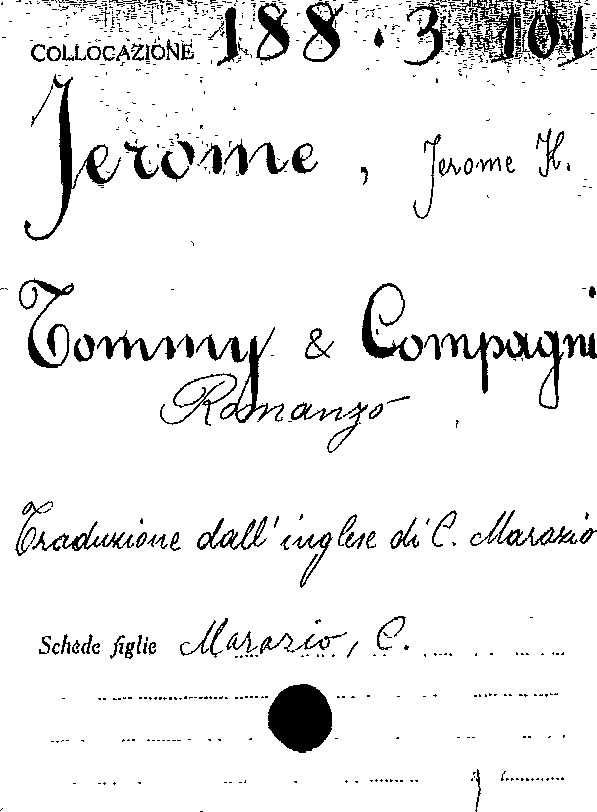 COLLOCAZIONE 188.3.101
Jerome, Jerome K.
Tommy & Compagni
Romanzo
Traduzione dall'inglese di C. Marazio
Schede figlie Marazio, C.